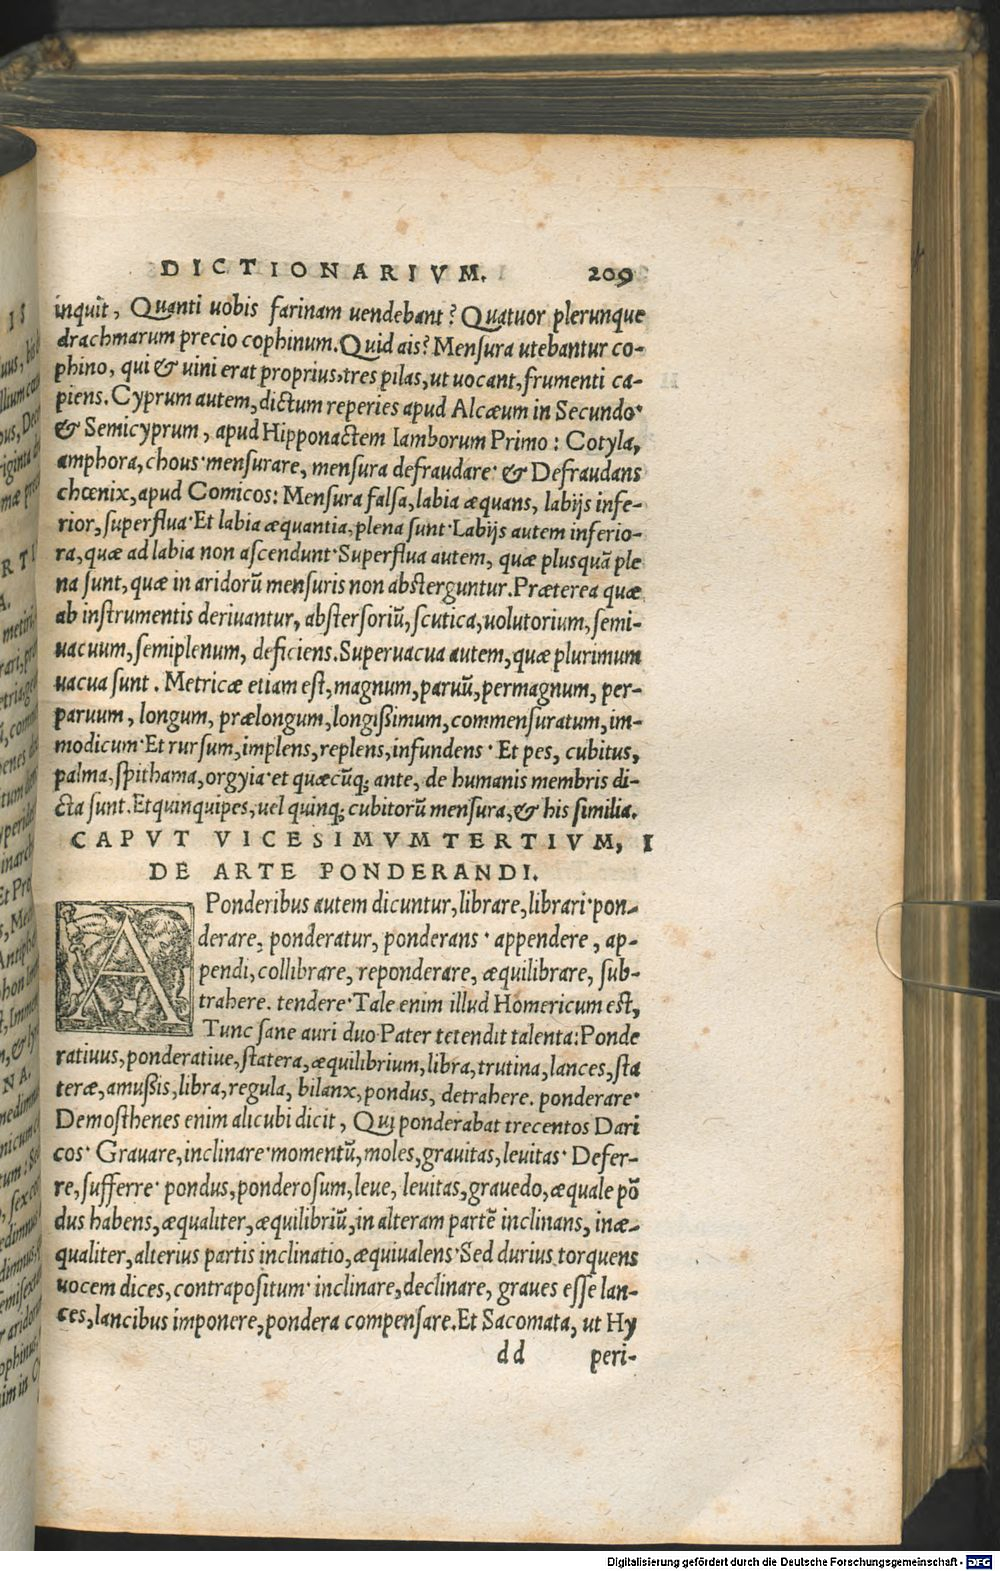 DICTIONARIVM. 209
inquit, Quanti uobis farinam uendebant? Quatuor plerunque
drachmarum precio cophinum. Quid ais? Mensura utebantur co-
phino, qui & uini erat proprius, tres pilas, ut uocant, frumenti ca-
piens. Cyprum autem, dictum reperies apud Alcæum in Secundo·
& Semicyprum, apud Hipponactem Iamborum Primo: Cotyla,
amphora, chous· mensurare, mensura defraudare· & Defraudans
chœnix, apud Comicos: Mensura falsa, labia æquans, labijs infe-
rior, superflua· Et labia æquantia, plena sunt· Labijs autem inferio-
ra, quæ ad labia non ascendunt· Superflua autem, quæ plusquã ple
na sunt, quæ in aridorũ mensuris non absterguntur. Præterea quæ
ab instrumentis deriuantur, abstersoriũ, scutica, uolutorium, semi-
uacuum, semiplenum, deficiens. Superuacua autem, quæ plurimum
uacua sunt. Metricæ etiam est, magnum, paruũ, permagnum, per-
paruum, longum, prælongum, longißimum, commensuratum, im-
modicum· Et rursum, implens, replens, infundens· Et pes, cubitus,
palma, spithama, orgyia· et quæcũq; ante, de humanis membris di-
cta sunt. Et quinquipes, uel quinq; cubitorũ mensura, & his similia.
CAPVT VICESIMVMTERTIVM, I
DE ARTE PONDERANDI.
A Ponderibus autem dicuntur, librare, librari· pon-
derare, ponderatur, ponderans· appendere, ap-
pendi, collibrare, reponderare, æquilibrare, sub-
trahere. tendere· Tale enim illud Homericum est,
Tunc sane auri duo Pater tetendit talenta: Ponde
ratiuus, ponderatiue, statera, æquilibrium, libra, trutina, lances, sta
teræ, amußis, libra, regula, bilanx, pondus, detrahere. ponderare·
Demosthenes enim alicubi dicit, Qui ponderabat trecentos Dari
cos· Grauare, inclinare· momentũ, moles, grauitas, leuitas· Defer-
re, sufferre· pondus, ponderosum, leue, leuitas, grauedo, æquale põ
dus habens, æqualiter, æquilibriũ, in alteram partẽ inclinans, inæ-
qualiter, alterius partis inclinatio, æquiualens· Sed durius torquens
uocem dices, contrapositum· inclinare, declinare, graues esse lan-
ces, lancibus imponere, pondera compensare. Et Sacomata, ut Hy
dd peri-
Digitalisierung gefördert durch die Deutsche Forschungsgemeinschaft - DFG